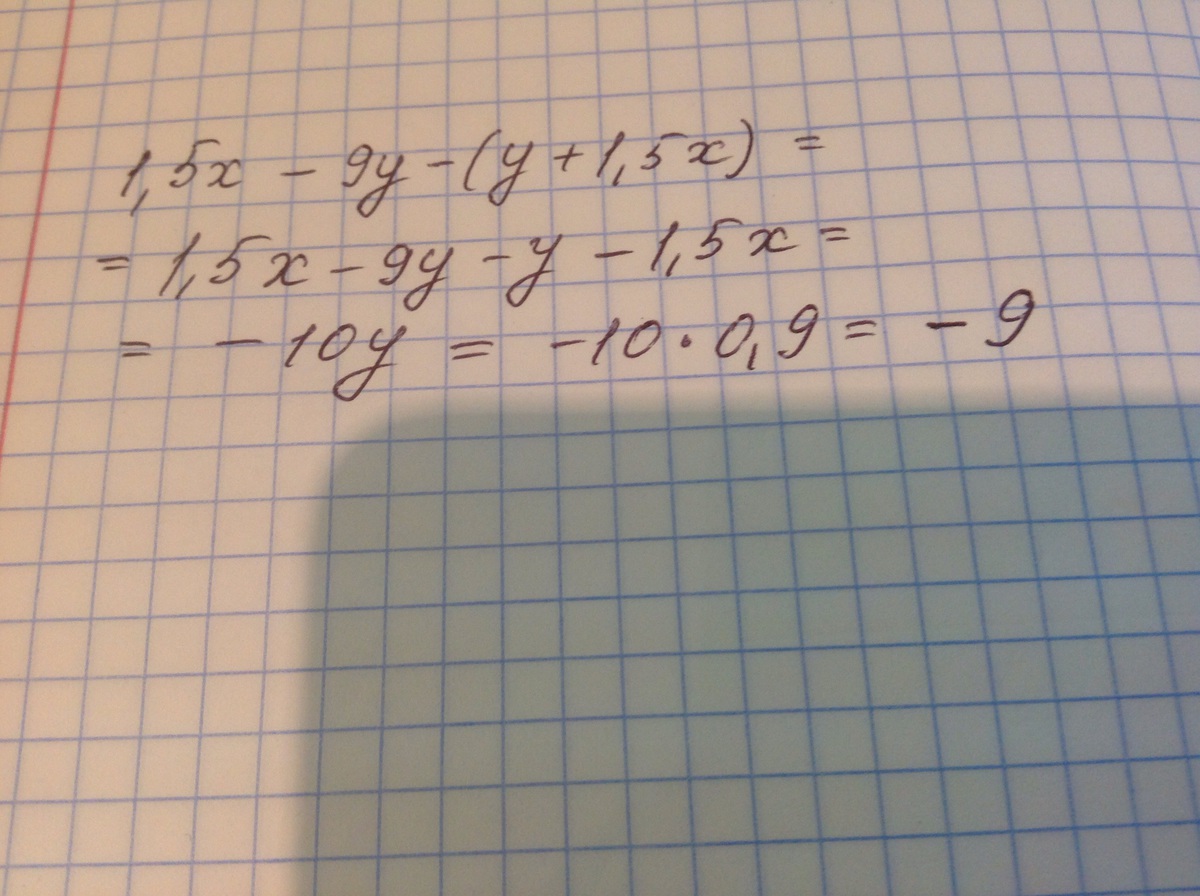 1,5x - 9y - (y + 1,5x) =
= 1,5x - 9y - y - 1,5x =
= - 10y = -10 · 0,9 = - 9